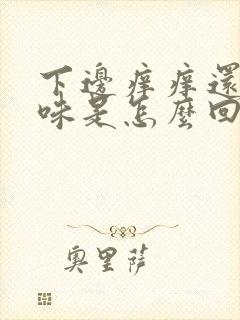 下邊痒痒還
味是怎麼回
奧里薩